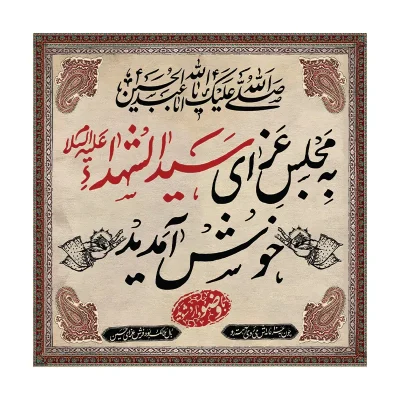 صَلَّی اللهُ عَلَیْکَ یا اَبا عَبْدِ اللهِ الْحُسَیْن
به مجلس عزای سیدالشهداء علیه السلام
خوش آمدید
با وضو وارد شوید